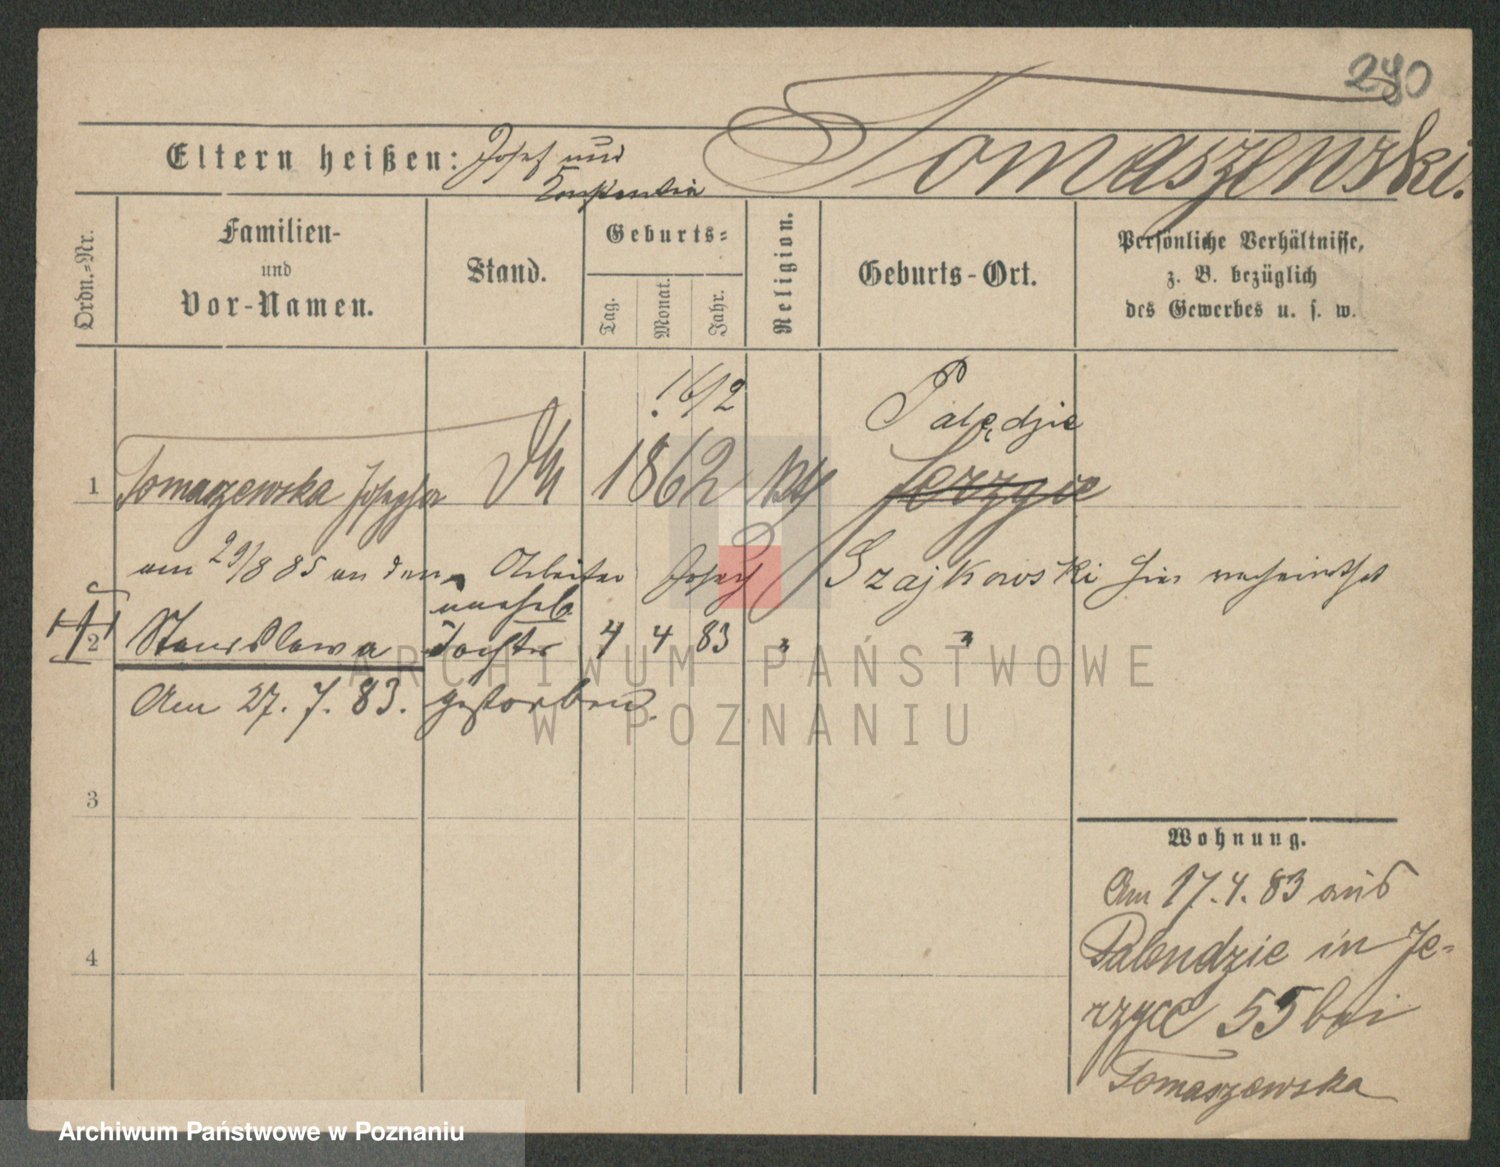 290
Tomaszewski.
Eltern heißen: Josef und
Konstantia
Ordn.-Nr.
Familien-
und
Vor-Namen.
Stand.
Geburts-
Tag.
Monat.
Jahr.
Religion.
Geburts-Ort.
Persönliche Verhältnisse,
z. B. bezüglich
des Gewerbes u. s. w.
16/2
Palędzie
1 Tomaszewska Josepha 1862 Jerzyce
am 29/8 85 an den Arbeiter Josef Szajkowski hier verheirathet
unehel.
2 Stanislawa Tochter 4 4 83 " "
Am 27. 7. 83. gestorben.
3
4
Wohnung.
Am 17. 4. 83 aus
Palendzie in Je-
rzyce 55 bei
Tomaszewska
ARCHIWUM PAŃSTWOWE
W POZNANIU
Archiwum Państwowe w Poznaniu